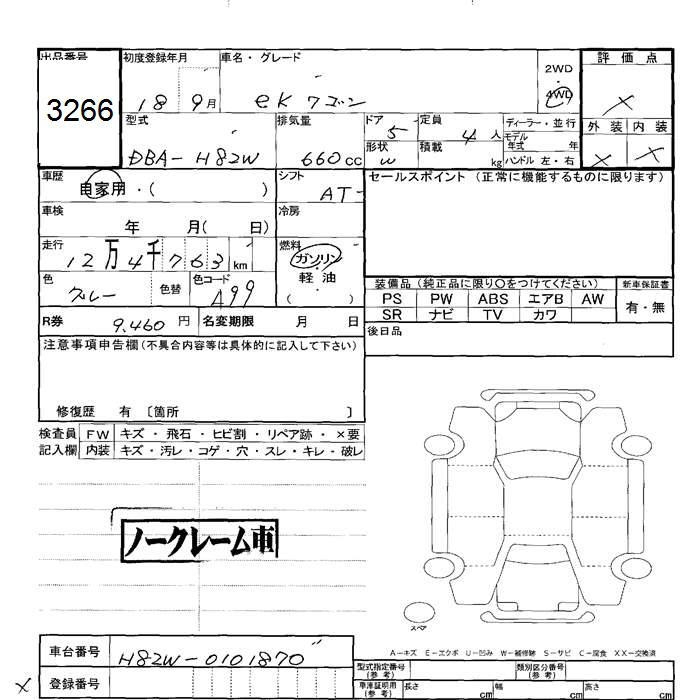 出品番号 初度登録年月 車名・グレード 評価点
3266 18 9月 eKワゴン 2WD 4WD ×
型式 排気量 ドア 定員 ディーラー・並行 外装 内装
DBA-H82W 660cc 5 4人 モデル年式 年 × ×
形状 W 積載 kg ハンドル 左・右
車歴 自家用・( ) シフト AT セールスポイント (正常に機能するものに限ります)
車検 年 月( 日) 冷房
走行 12万4千763km 燃料 ガソリン・軽油 ( )
色 グレー 色替 色コード A99
装備品 (純正品に限り○をつけてください) 新車保証書
PS PW ABS エアB AW 有・無
SR ナビ TV カワ
R券 9,460円 名変期限 月 日 後日品
注意事項申告欄 (不具合内容等は具体的に記入して下さい)
修復歴 有 〔箇所 〕
検査員 FW キズ・飛石・ヒビ割・リペア跡・×要
記入欄 内装 キズ・汚レ・コゲ・穴・スレ・キレ・破レ
ノークレーム車
スペア
A-キズ E-エクボ U-凹み W-補修跡 S-サビ C-腐食 XX-交換済
車台番号 H82W-0101870
型式指定番号(参考) 類別区分番号(参考)
× 登録番号
車庫証明用(参考) 長さ cm 幅 cm 高さ cm